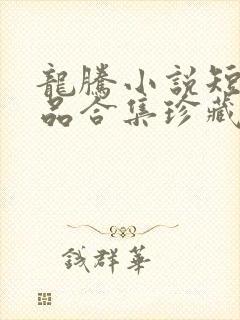 龍騰小說短
品合集珍藏
鉞群華